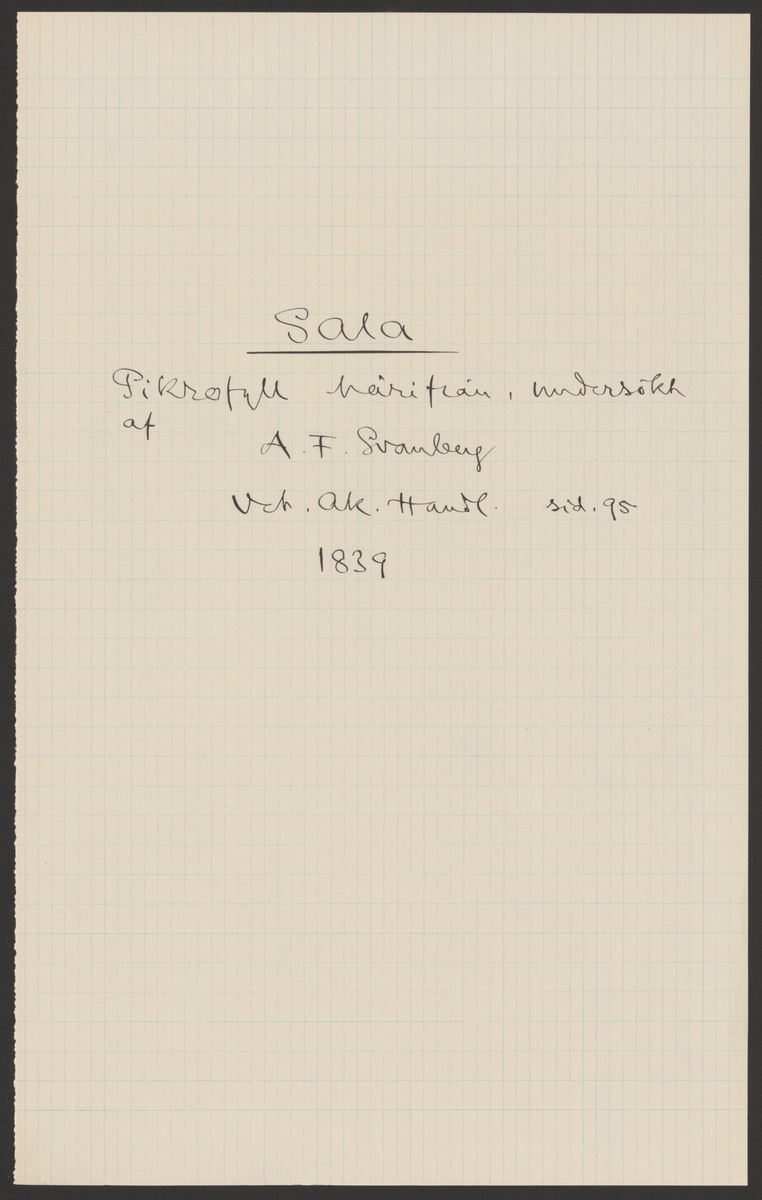 Sala
Pikrofyll härifrån, undersökt
af
A. F. Svanberg
Vet. Ak. Handl. sid. 95
1839